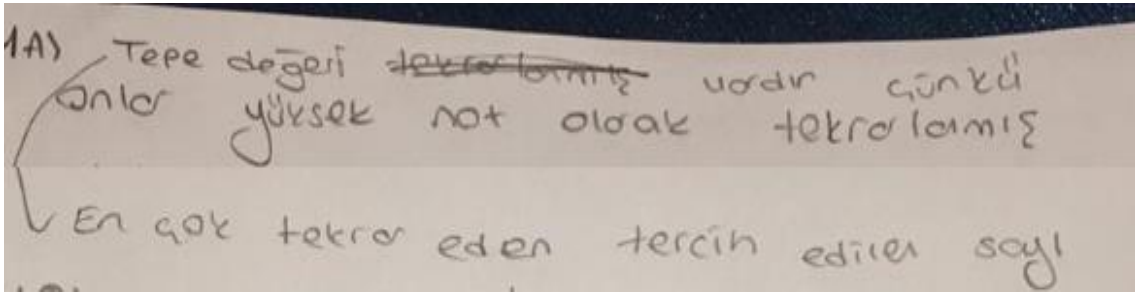 1A) Tepe değeri tekrarlamış vardır çünkü
onlar yüksek not olarak tekrarlamış
En çok tekrar eden tercih edilen sayı